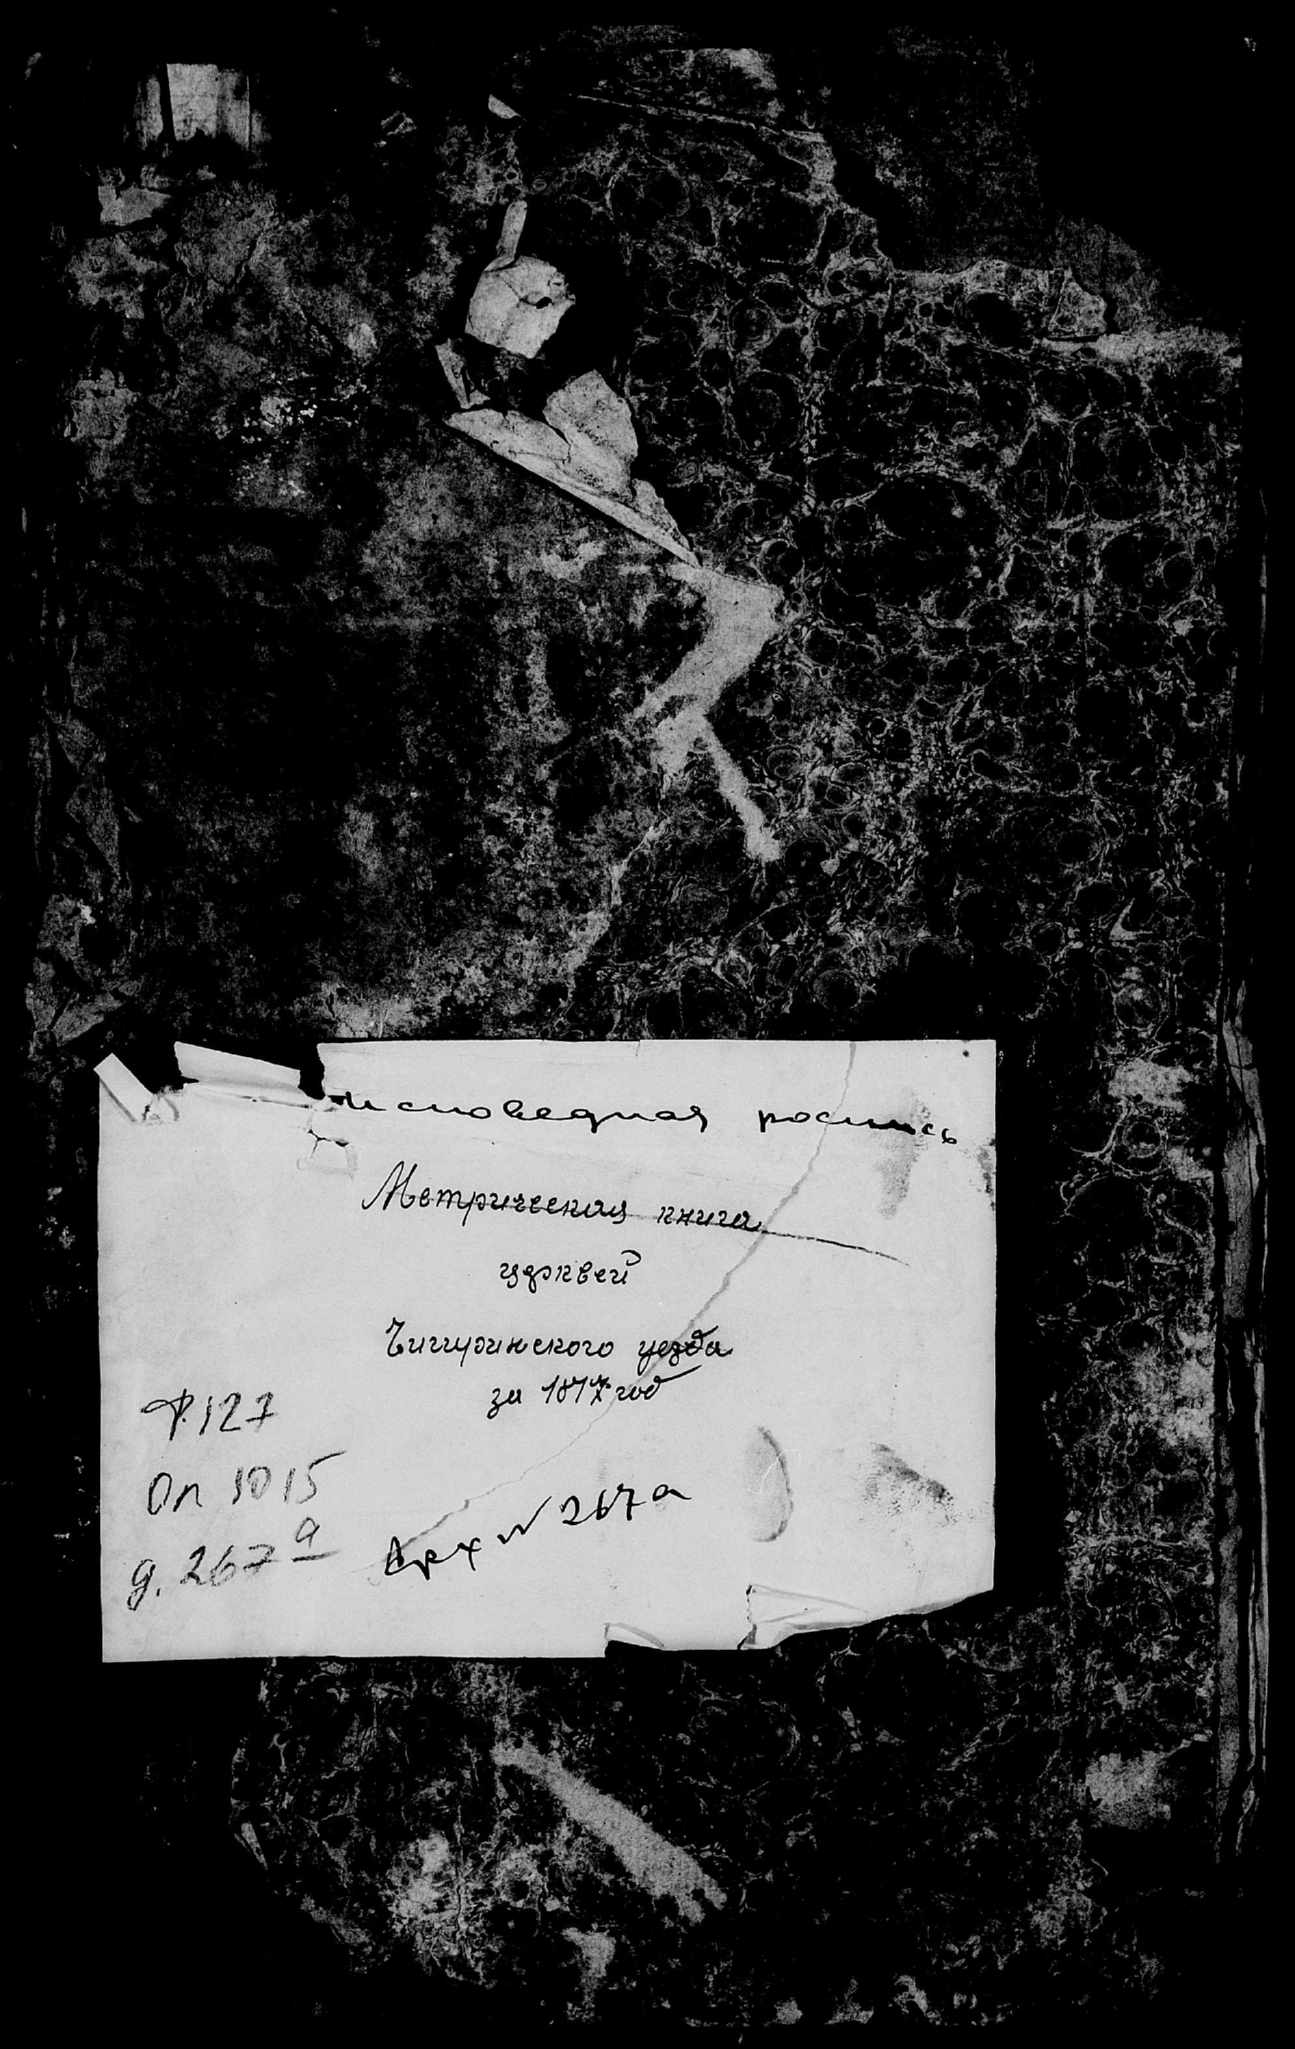 исповедная роспись
Метрическая книга
церквей
Чигиринского уезда
за 1817 год
Ф.127
Оп 1015
д. 267 а
Арх № 267а